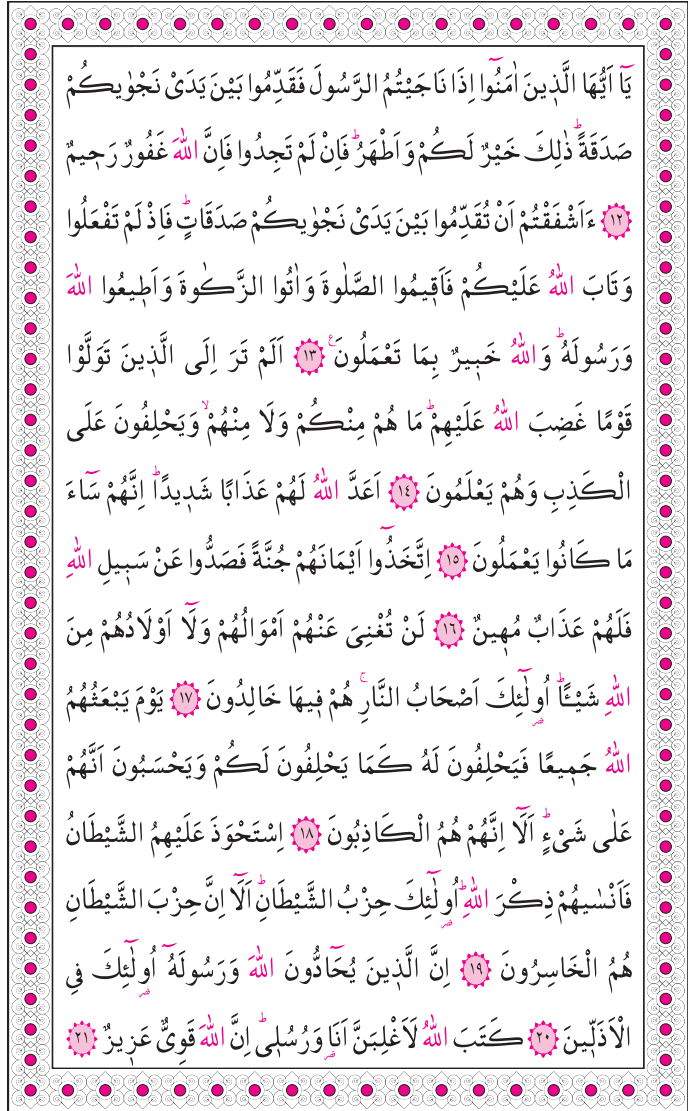 يَٓا اَيُّهَا الَّذ۪ينَ اٰمَنُٓوا اِذَا نَاجَيْتُمُ الرَّسُولَ فَقَدِّمُوا بَيْنَ يَدَيْ نَجْوٰيكُمْ
صَدَقَةًۜ ذٰلِكَ خَيْرٌ لَكُمْ وَاَطْهَرُۜ فَاِنْ لَمْ تَجِدُوا فَاِنَّ اللّٰهَ غَفُورٌ رَح۪يمٌ
﴿١٢﴾ ءَاَشْفَقْتُمْ اَنْ تُقَدِّمُوا بَيْنَ يَدَيْ نَجْوٰيكُمْ صَدَقَاتٍۜ فَاِذْ لَمْ تَفْعَلُوا
وَتَابَ اللّٰهُ عَلَيْكُمْ فَاَق۪يمُوا الصَّلٰوةَ وَاٰتُوا الزَّكٰوةَ وَاَط۪يعُوا اللّٰهَ
وَرَسُولَهُۜ وَاللّٰهُ خَب۪يرٌ بِمَا تَعْمَلُونَ۟ ﴿١٣﴾ اَلَمْ تَرَ اِلَى الَّذ۪ينَ تَوَلَّوْا
قَوْمًا غَضِبَ اللّٰهُ عَلَيْهِمْۜ مَا هُمْ مِنْكُمْ وَلَا مِنْهُمْۙ وَيَحْلِفُونَ عَلَى
الْكَذِبِ وَهُمْ يَعْلَمُونَ ﴿١٤﴾ اَعَدَّ اللّٰهُ لَهُمْ عَذَابًا شَد۪يدًاۜ اِنَّهُمْ سَٓاءَ
مَا كَانُوا يَعْمَلُونَ ﴿١٥﴾ اِتَّخَذُٓوا اَيْمَانَهُمْ جُنَّةً فَصَدُّوا عَنْ سَب۪يلِ اللّٰهِ
فَلَهُمْ عَذَابٌ مُه۪ينٌ ﴿١٦﴾ لَنْ تُغْنِيَ عَنْهُمْ اَمْوَالُهُمْ وَلَٓا اَوْلَادُهُمْ مِنَ
اللّٰهِ شَيْـًٔاۜ اُو۬لٰٓئِكَ اَصْحَابُ النَّارِۚ هُمْ ف۪يهَا خَالِدُونَ ﴿١٧﴾ يَوْمَ يَبْعَثُهُمُ
اللّٰهُ جَم۪يعًا فَيَحْلِفُونَ لَهُ كَمَا يَحْلِفُونَ لَكُمْ وَيَحْسَبُونَ اَنَّهُمْ
عَلٰى شَيْءٍۜ اَلَٓا اِنَّهُمْ هُمُ الْكَاذِبُونَ ﴿١٨﴾ اِسْتَحْوَذَ عَلَيْهِمُ الشَّيْطَانُ
فَاَنْسٰيهُمْ ذِكْرَ اللّٰهِۜ اُو۬لٰٓئِكَ حِزْبُ الشَّيْطَانِۜ اَلَٓا اِنَّ حِزْبَ الشَّيْطَانِ
هُمُ الْخَاسِرُونَ ﴿١٩﴾ اِنَّ الَّذ۪ينَ يُحَٓادُّونَ اللّٰهَ وَرَسُولَهُٓ اُو۬لٰٓئِكَ فِي
الْاَذَلّ۪ينَ ﴿٢٠﴾ كَتَبَ اللّٰهُ لَاَغْلِبَنَّ اَنَا۬ وَرُسُل۪يۜ اِنَّ اللّٰهَ قَوِيٌّ عَز۪يزٌ ﴿٢١﴾